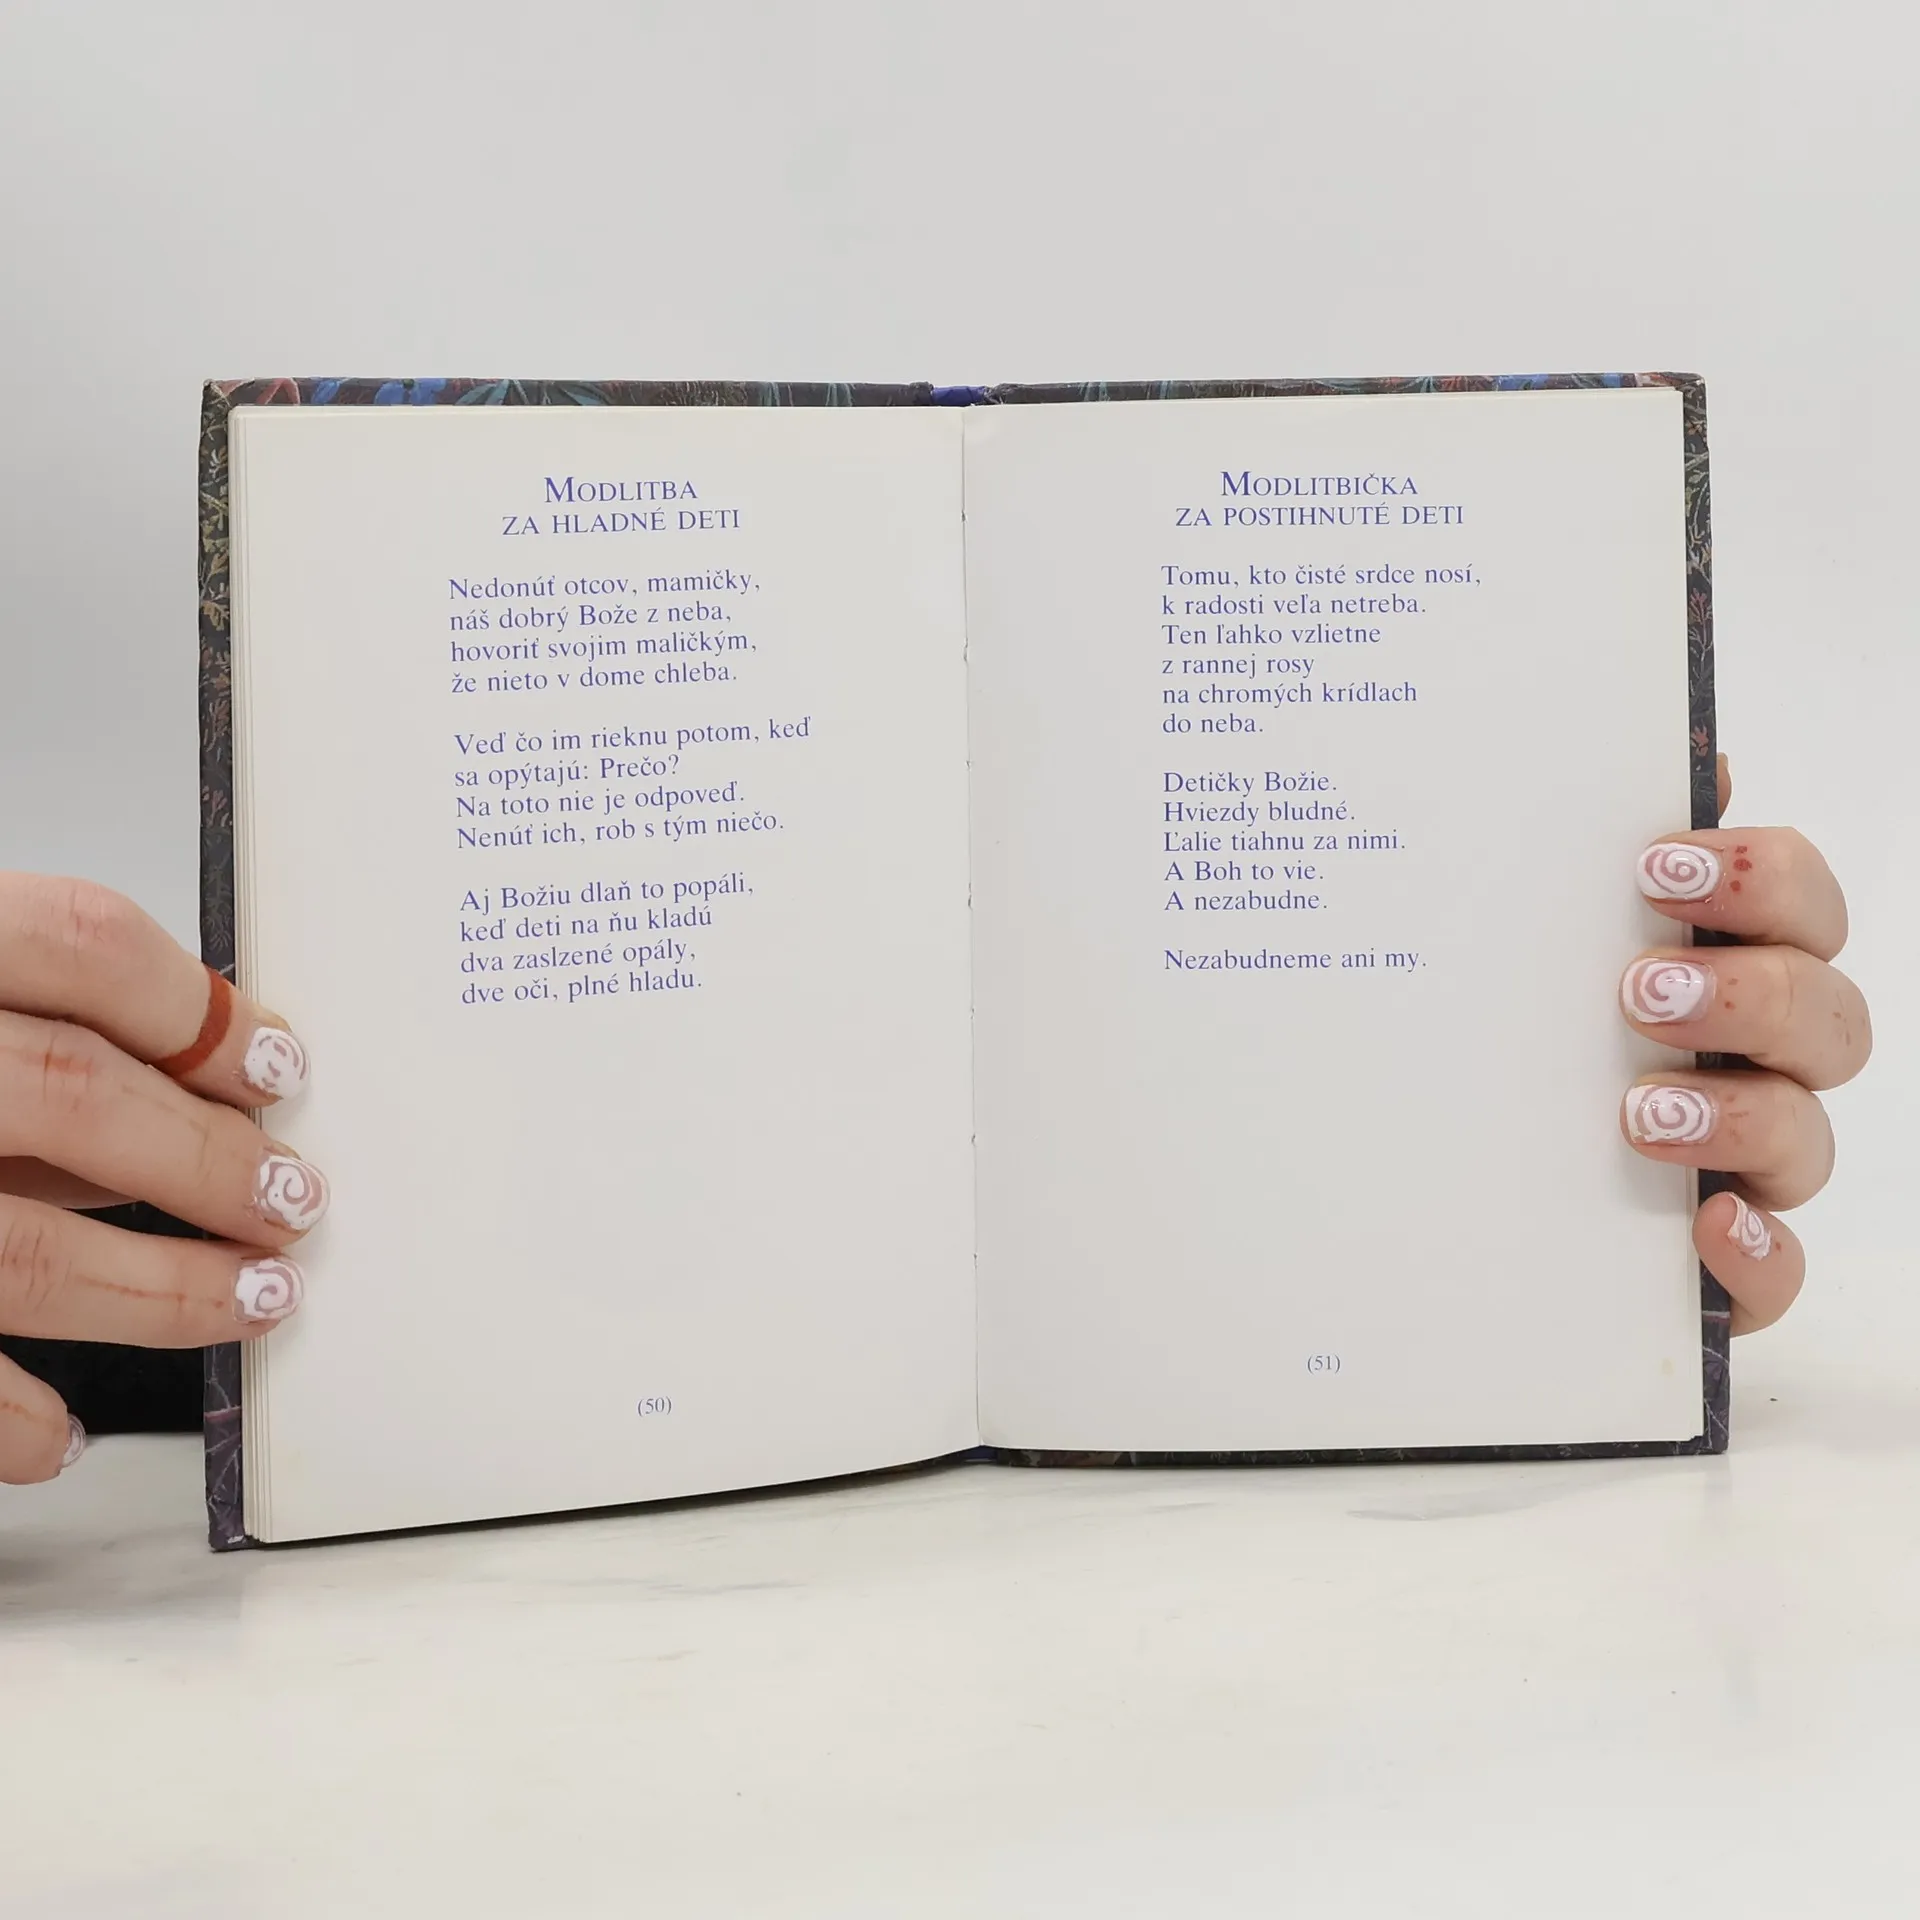 MODLITBA
ZA HLADNÉ DETI
Nedonúť otcov, mamičky,
náš dobrý Bože z neba,
hovoriť svojim maličkým,
že nieto v dome chleba.
Veď čo im rieknu potom, keď
sa opýtajú: Prečo?
Na toto nie je odpoveď.
Nenúť ich, rob s tým niečo.
Aj Božiu dlaň to popáli,
keď deti na ňu kladú
dva zaslzené opály,
dve oči, plné hladu.
(50)
MODLITBIČKA
ZA POSTIHNUTÉ DETI
Tomu, kto čisté srdce nosí,
k radosti veľa netreba.
Ten ľahko vzlietne
z rannej rosy
na chromých krídlach
do neba.
Detičky Božie.
Hviezdy bludné.
Ľalie tiahnu za nimi.
A Boh to vie.
A nezabudne.
Nezabudneme ani my.
(51)